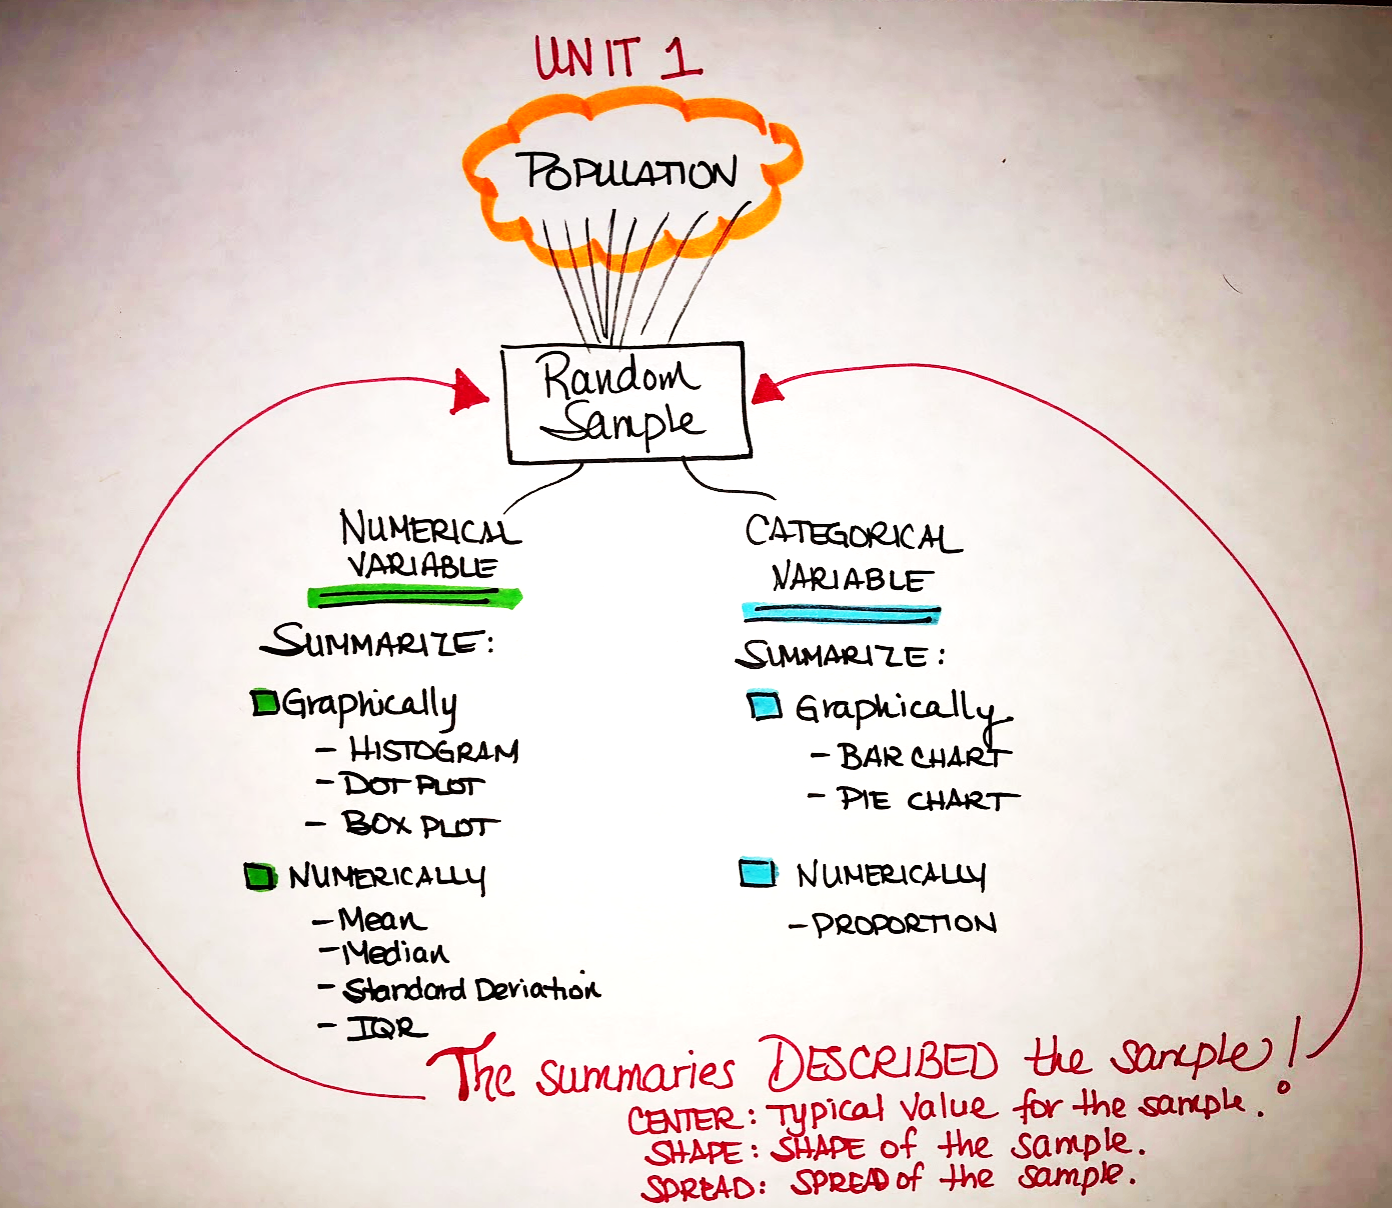 UNIT 1
POPULATION
Random
Sample
NUMERICAL
VARIABLE
SUMMARIZE:
Graphically
- HISTOGRAM
- DOT PLOT
- BOX PLOT
NUMERICALLY
- Mean
- Median
- Standard Deviation
- IQR
CATEGORICAL
VARIABLE
SUMMARIZE:
Graphically
- BAR CHART
- PIE CHART
NUMERICALLY
- PROPORTION
The summaries DESCRIBED the sample!
CENTER: Typical Value for the sample.
SHAPE: SHAPE of the sample.
SPREAD: SPREAD of the sample.